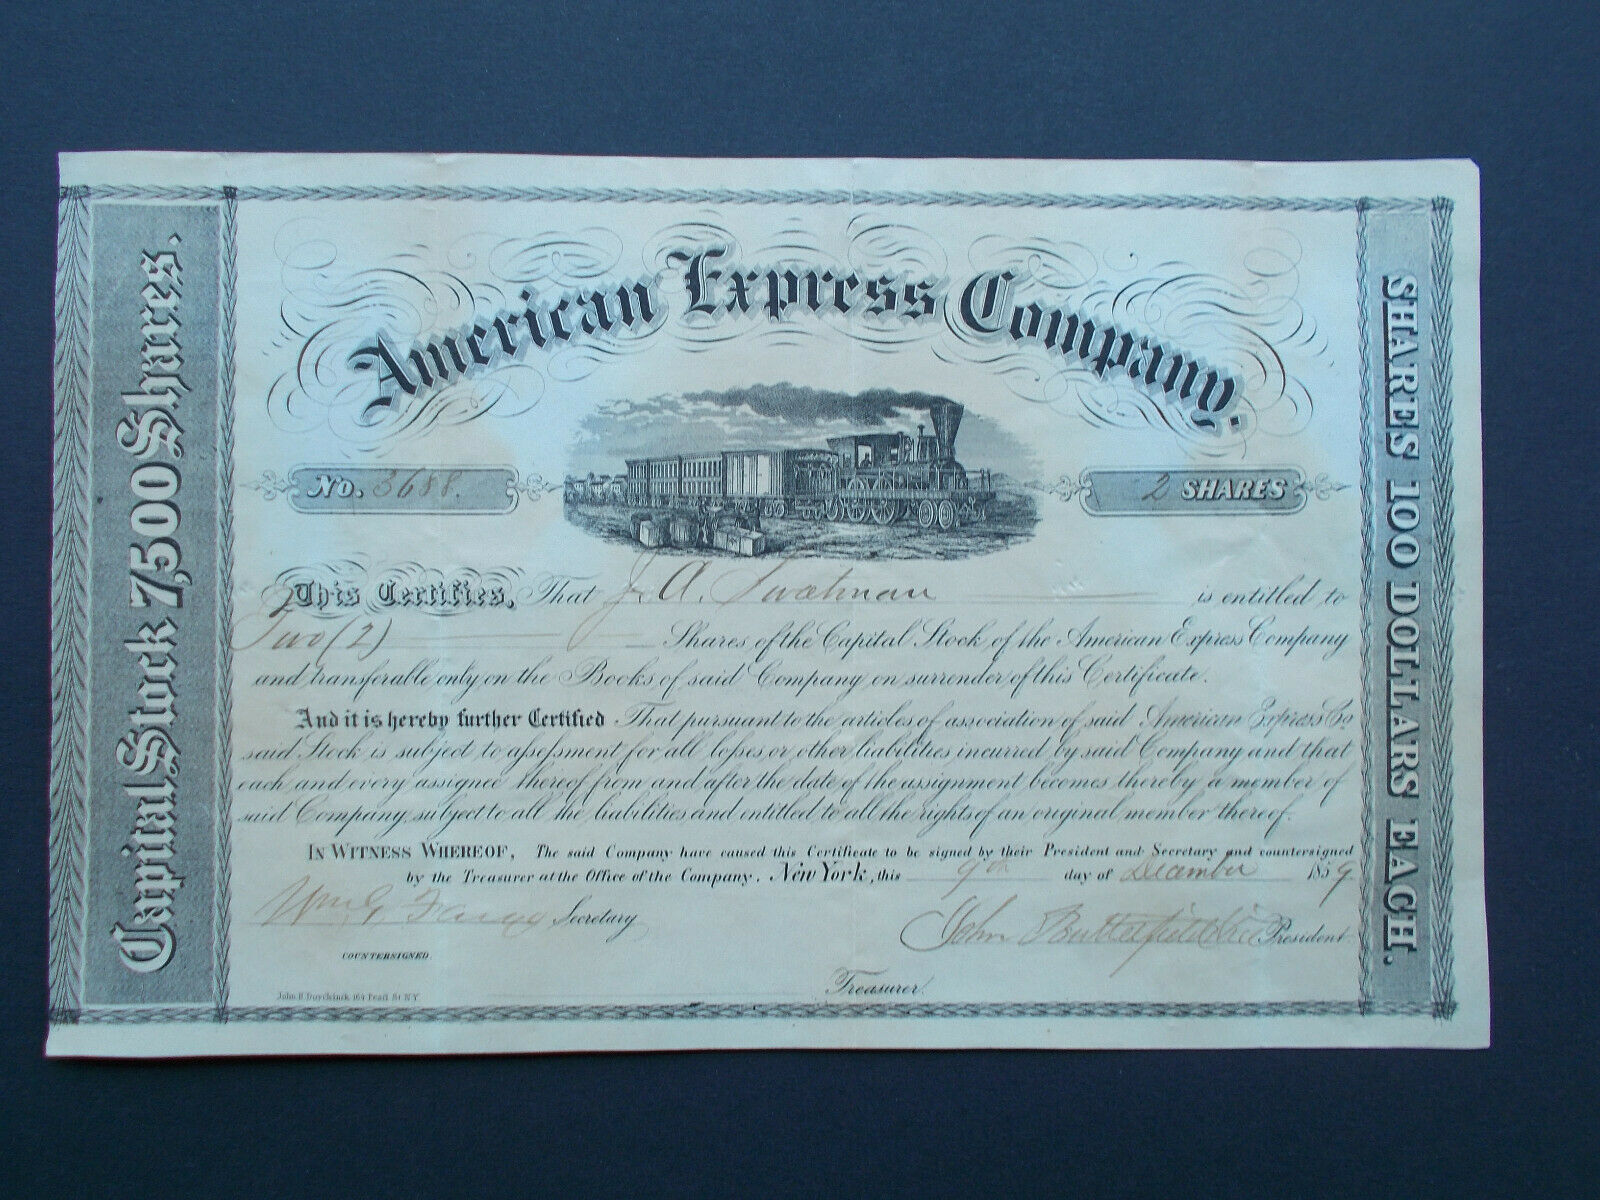 American Express Company.
Capital Stock 7,500 Shares.
SHARES 100 DOLLARS EACH.
No. 3688.
2 SHARES
This Certifies, That J. A. Swatman is entitled to
Two (2) Shares of the Capital Stock of the American Express Company
and transferable only on the Books of said Company on surrender of this Certificate.
And it is hereby further Certified That pursuant to the articles of association of said American Express Co
said Stock is subject to assessment for all losses or other liabilities incurred by said Company and that
each and every assignee thereof from and after the date of the assignment becomes thereby a member of
said Company subject to all the liabilities and entitled to all the rights of an original member thereof.
IN WITNESS WHEREOF, The said Company have caused this Certificate to be signed by their President and Secretary and countersigned
by the Treasurer at the Office of the Company. New York, this 9th day of December 1859.
Wm G Fargo Secretary
John Butterfield President
COUNTERSIGNED.
Treasurer.
John E. Duyckinck 164 Pearl St NY